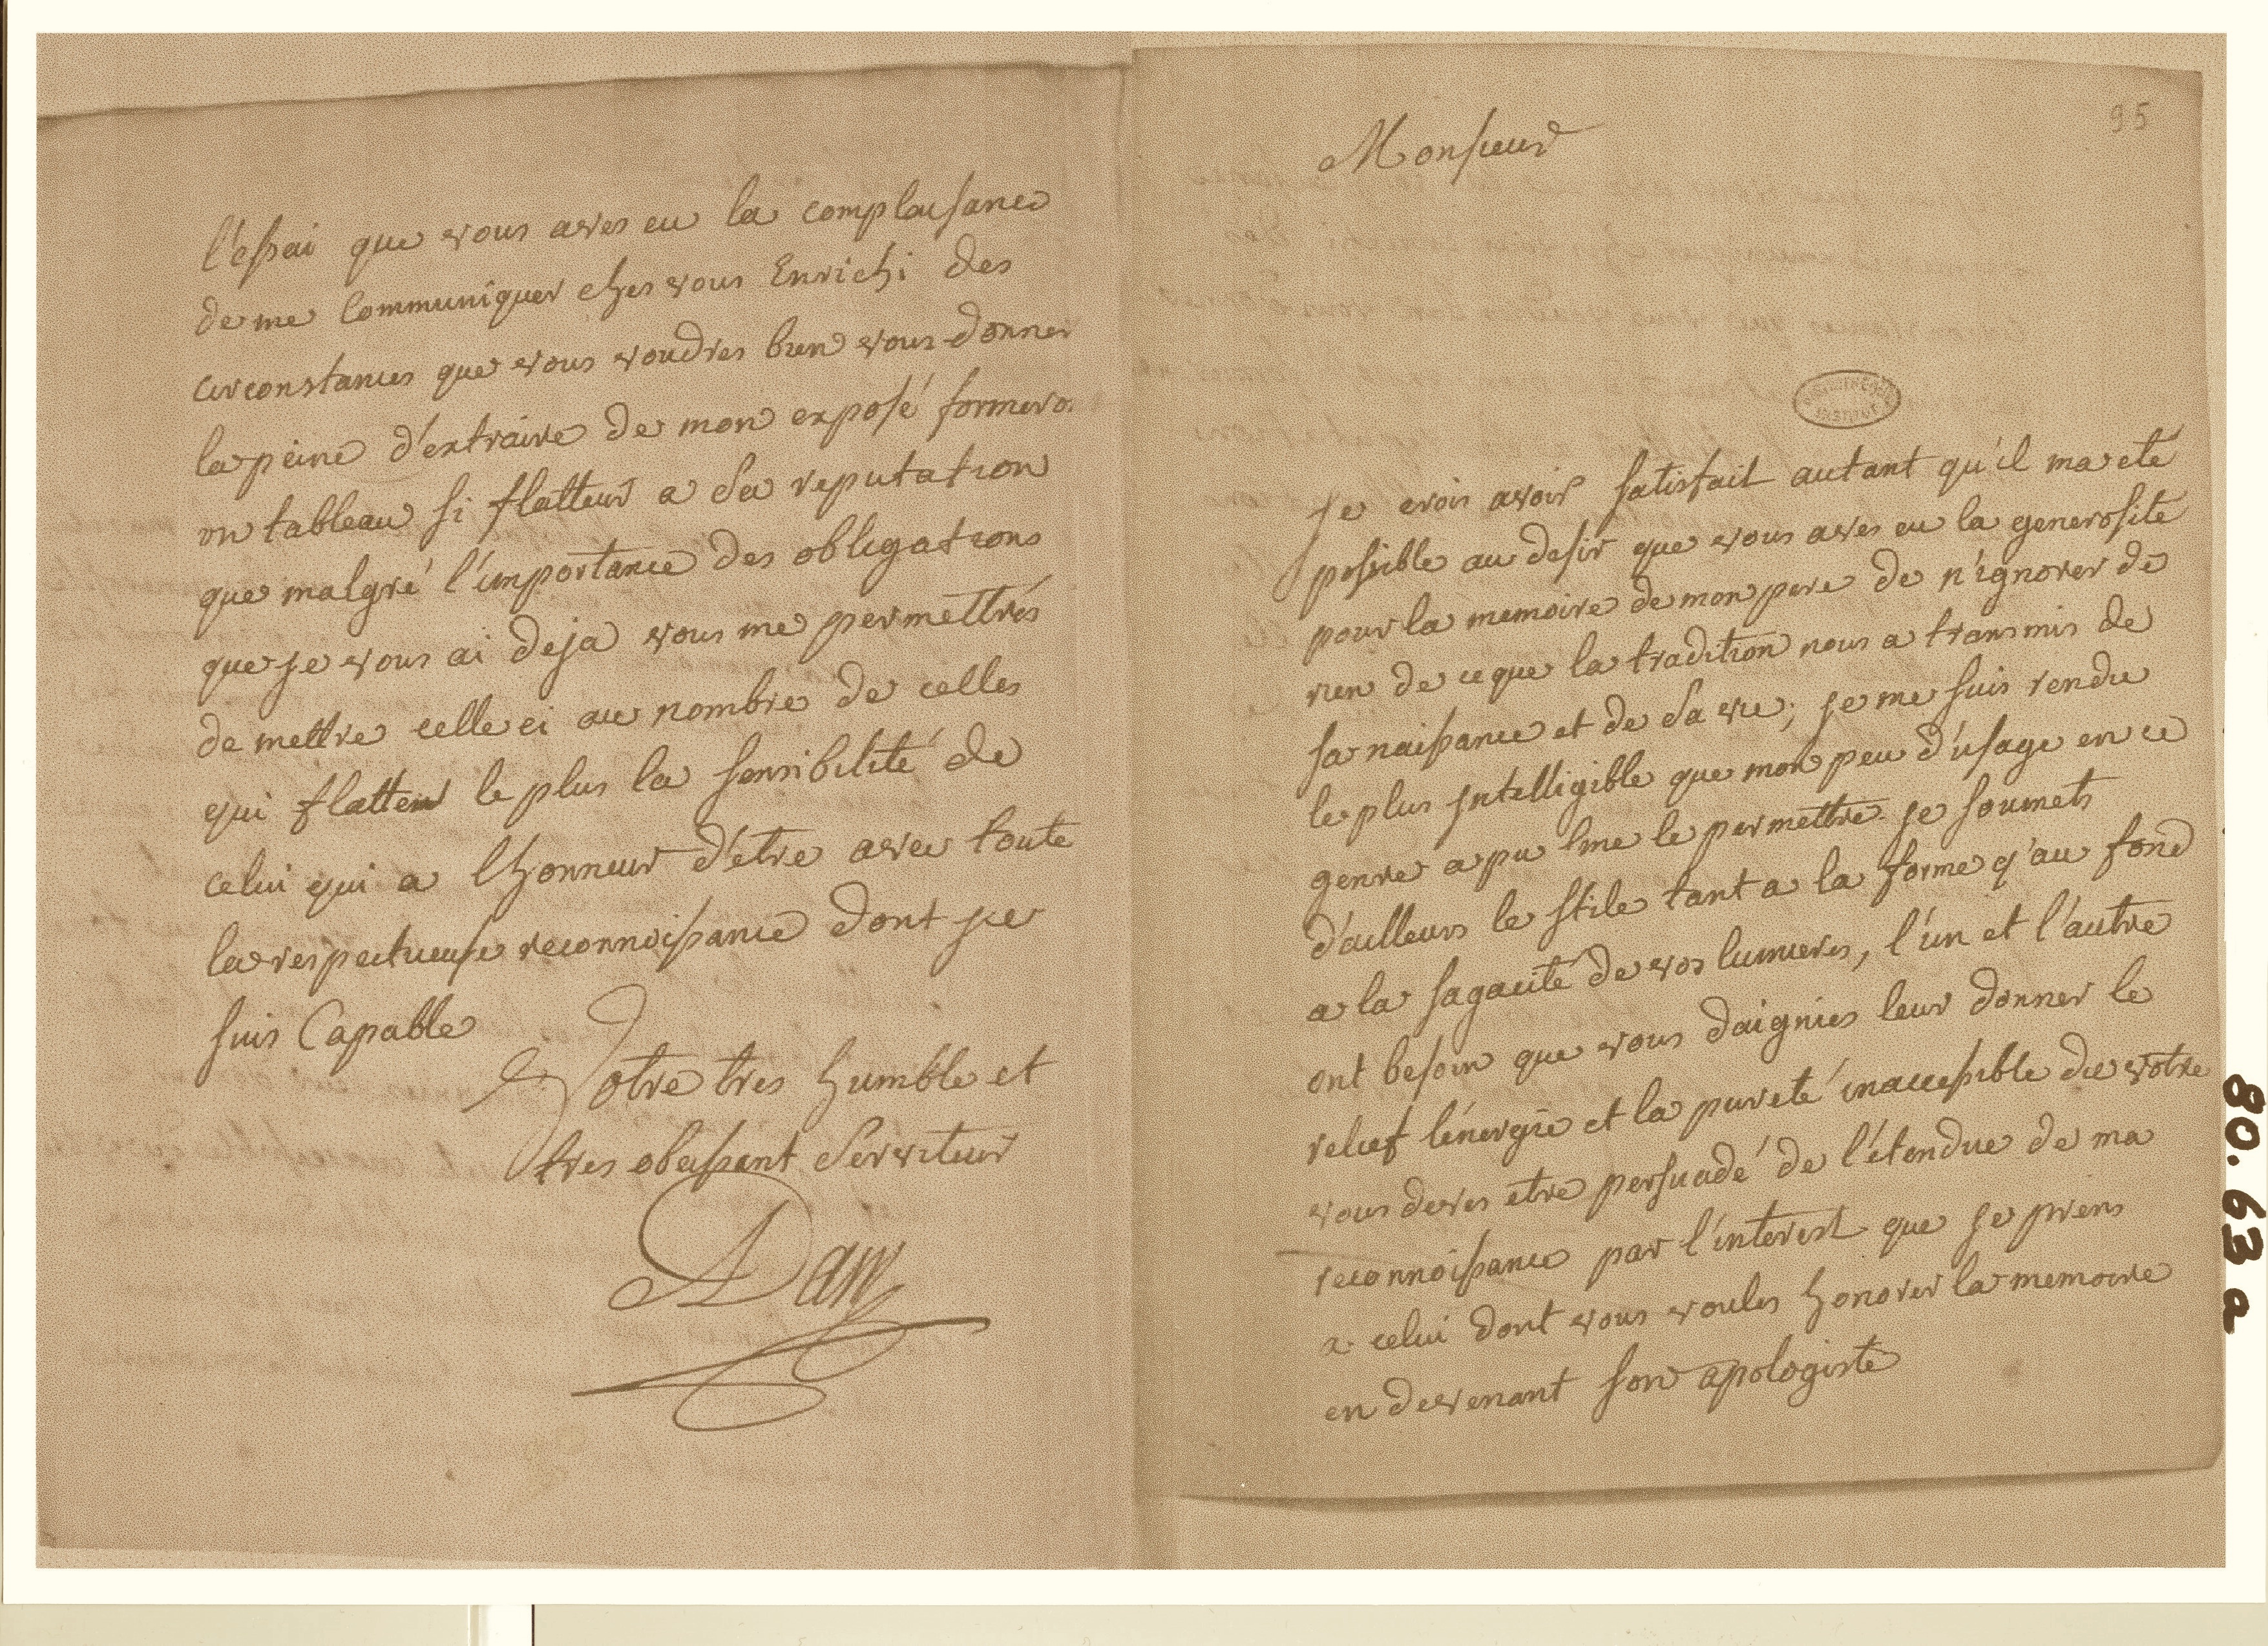 95
Monsieur
BIBLIOTHEQUE
INSTITUT
je crois avoir satisfait autant qu'il ma eté
possible au desir que vous aves eu la generosité
pour la memoire de mon pere de n'ignorer de
rien de ce que la tradition nous a transmis de
sa naissance et de sa vie; je me suis rendu
le plus intelligible que mon peu d'usage en ce
genre a pu me le permettre je soumets
d'ailleurs le stile tant a la forme q'au fond
a la sagacité de vos lumieres, l'un et l'autre
ont besoin que vous daigniés leur donner le
relief l'énergie et la pureté inaccessible du vôtre
vous deves etre persuadé de l'étendue de ma
reconnoissance par l'interest que je prens
a celui dont vous voules honorer la memoire
en devenant son apologiste
l'essai que vous aves eu la complaisance
de me Communiquer ches vous Enrichi des
circonstances que vous voudres bien vous donner
la peine d'extraire de mon exposé formera
un tableau si flatteur a sa reputation
que malgré l'importance des obligations
que je vous ai deja vous me permettrés
de mettre celle ci au nombre de celles
qui flattent le plus la sensibilité de
celui qui a lhonneur d'etre avec toute
la respectueuse reconnoissance dont je
suis Capable
Votre tres humble et
tres obeissant Serviteur
Adam
80.63 a